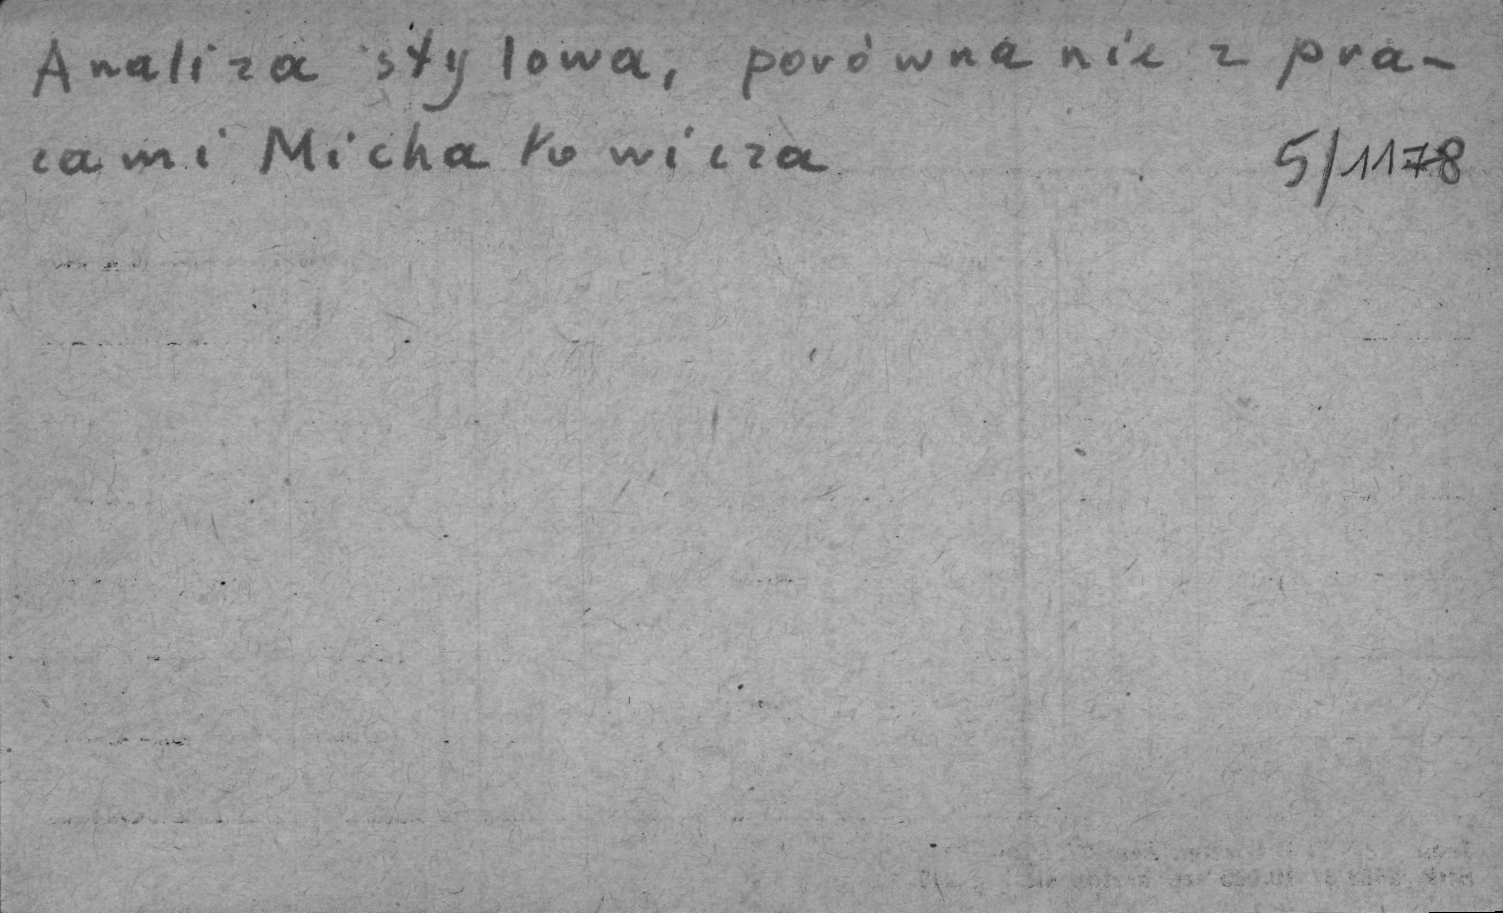 Analiza stylowa, porównanie z pra-
cami Michałowicza 5/1178